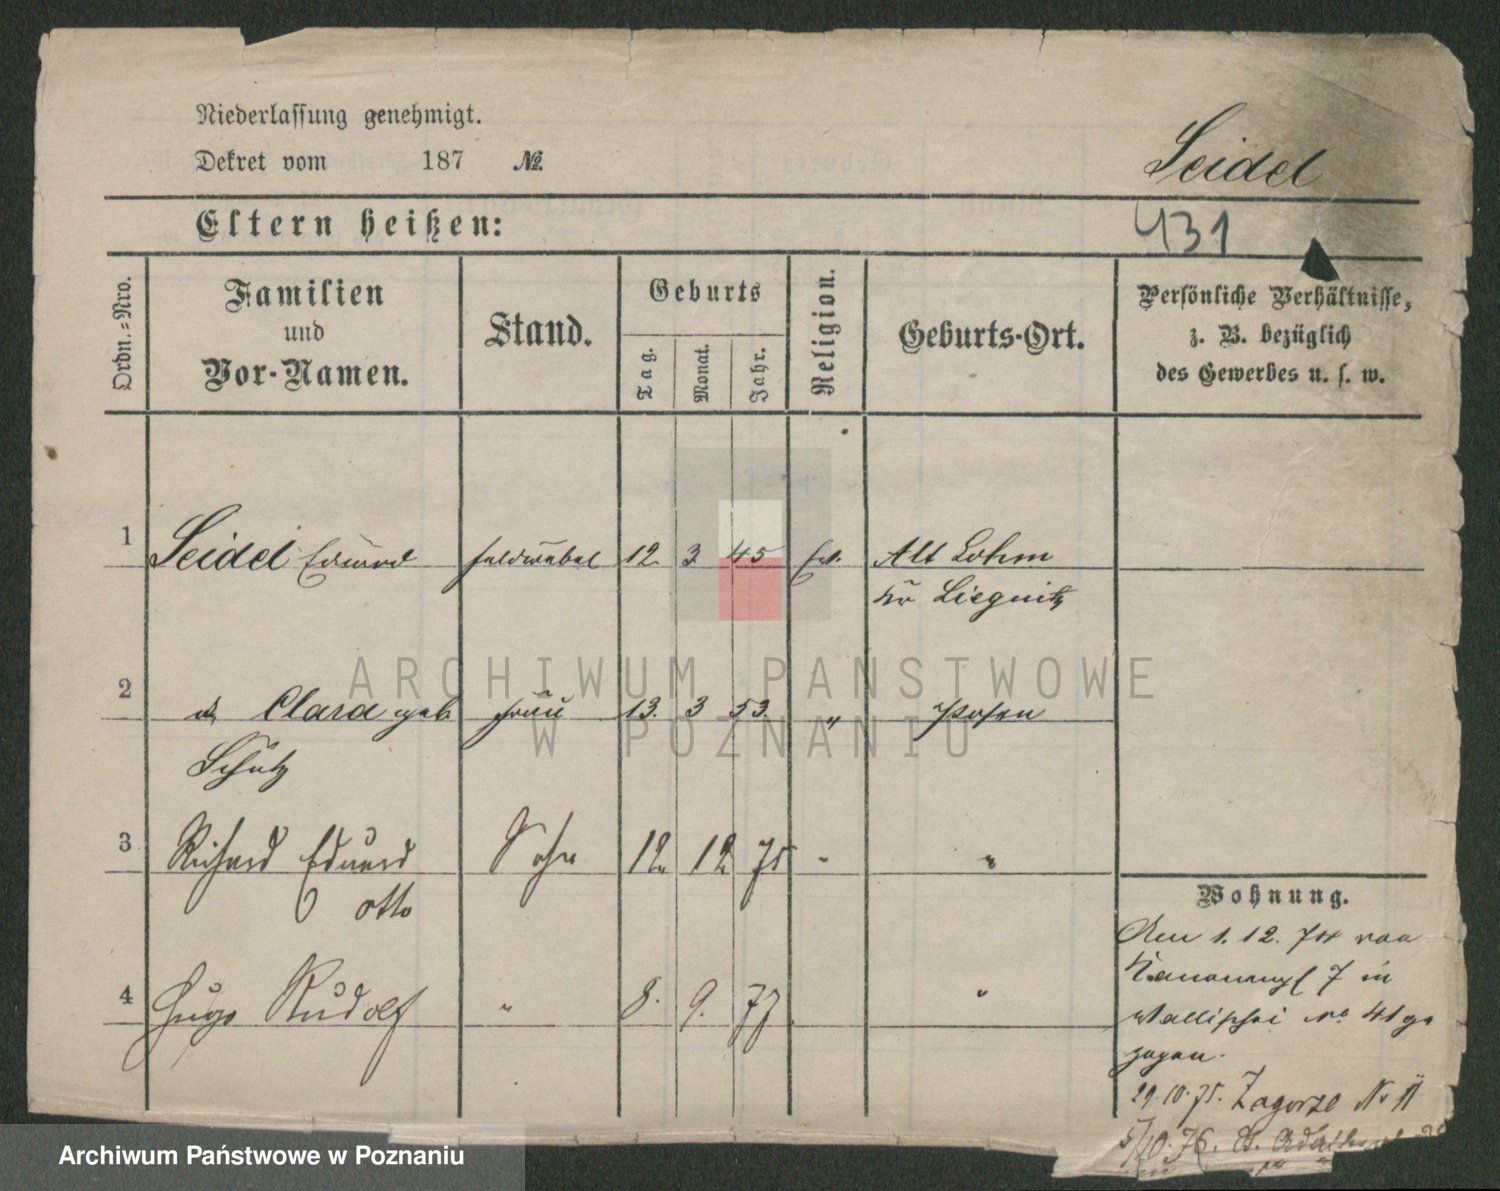 Niederlassung genehmigt.
Dekret vom 187 №.
Seidel
Eltern heißen:
431
Ordn.=Nro.
Familien
und
Vor-Namen.
Stand.
Geburts
Tag.
Monat.
Jahr.
Religion.
Geburts-Ort.
Persönliche Verhältnisse,
z. B. bezüglich
des Gewerbes u. s. w.
1 Seidel Eduard Feldwebel 12 3 45 Ev. Alt Lohm
Kr Liegnitz
ARCHIWUM PAŃSTWOWE
W POZNANIU
2 Clara geb Frau 13. 3 53. " Posen
Schütz
3 Richard Eduard Sohn 12. 12 75 " "
Otto
Wohnung.
Am 1. 12. 74 von
7 in
4 Hugo Rudolf " 8. 9. 77 "
Wallischei No 41 ge
zogen.
29.10.75. Zagorze No 11
5/10.76. St. Adalbert
Archiwum Państwowe w Poznaniu